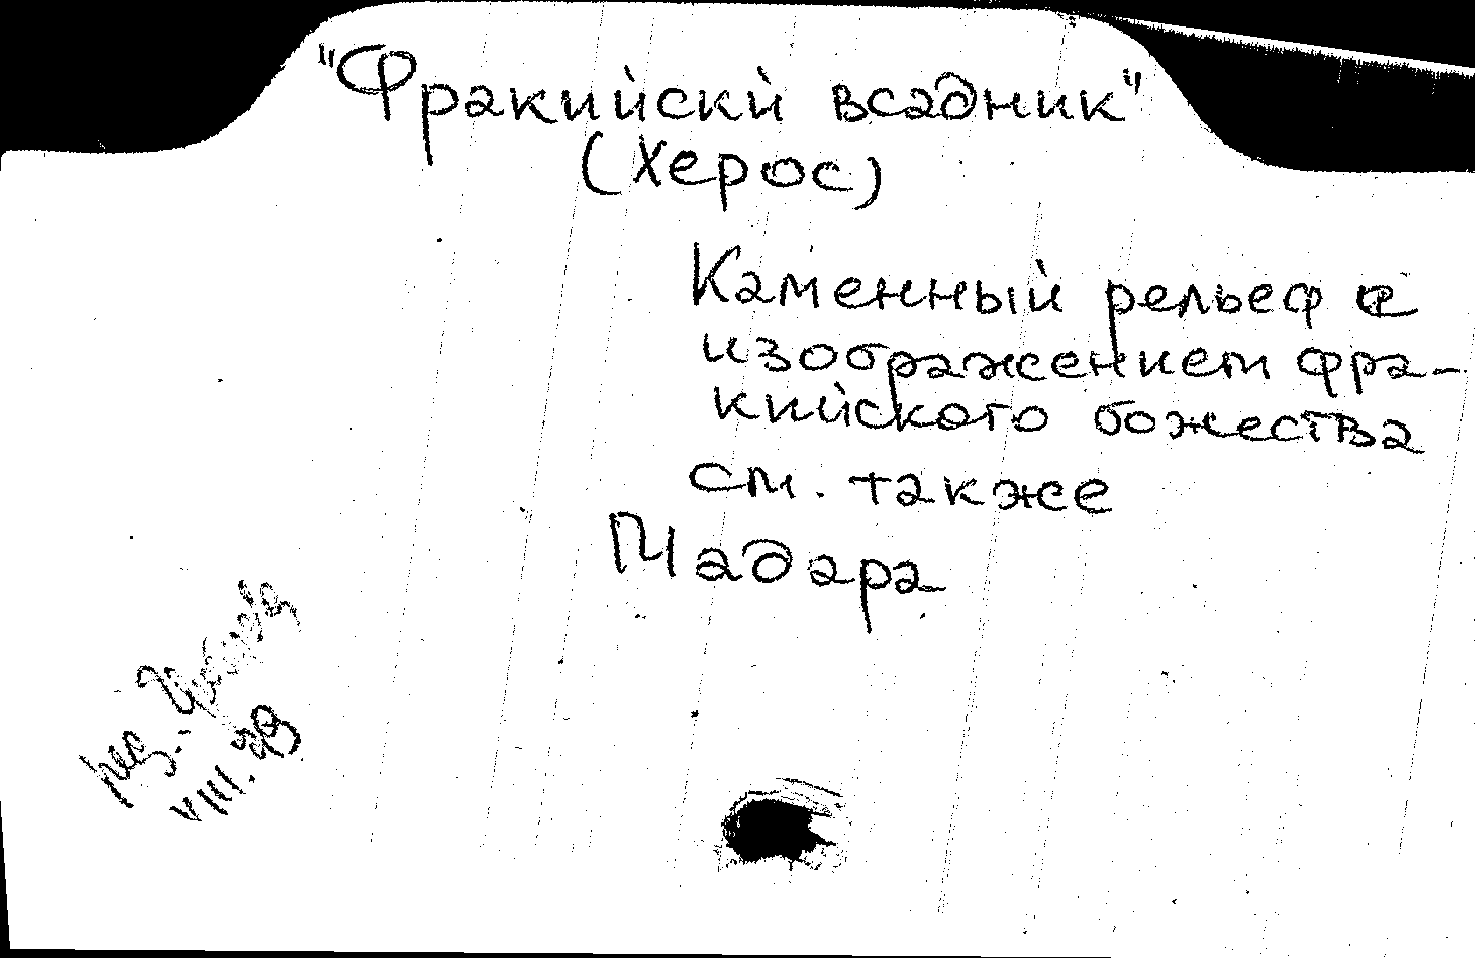 "Фракийскй всадник"
(Херос)
Каменный рельеф с
изображением фра-
кийского божества
см. также
Мадара
ред.
VIII.79